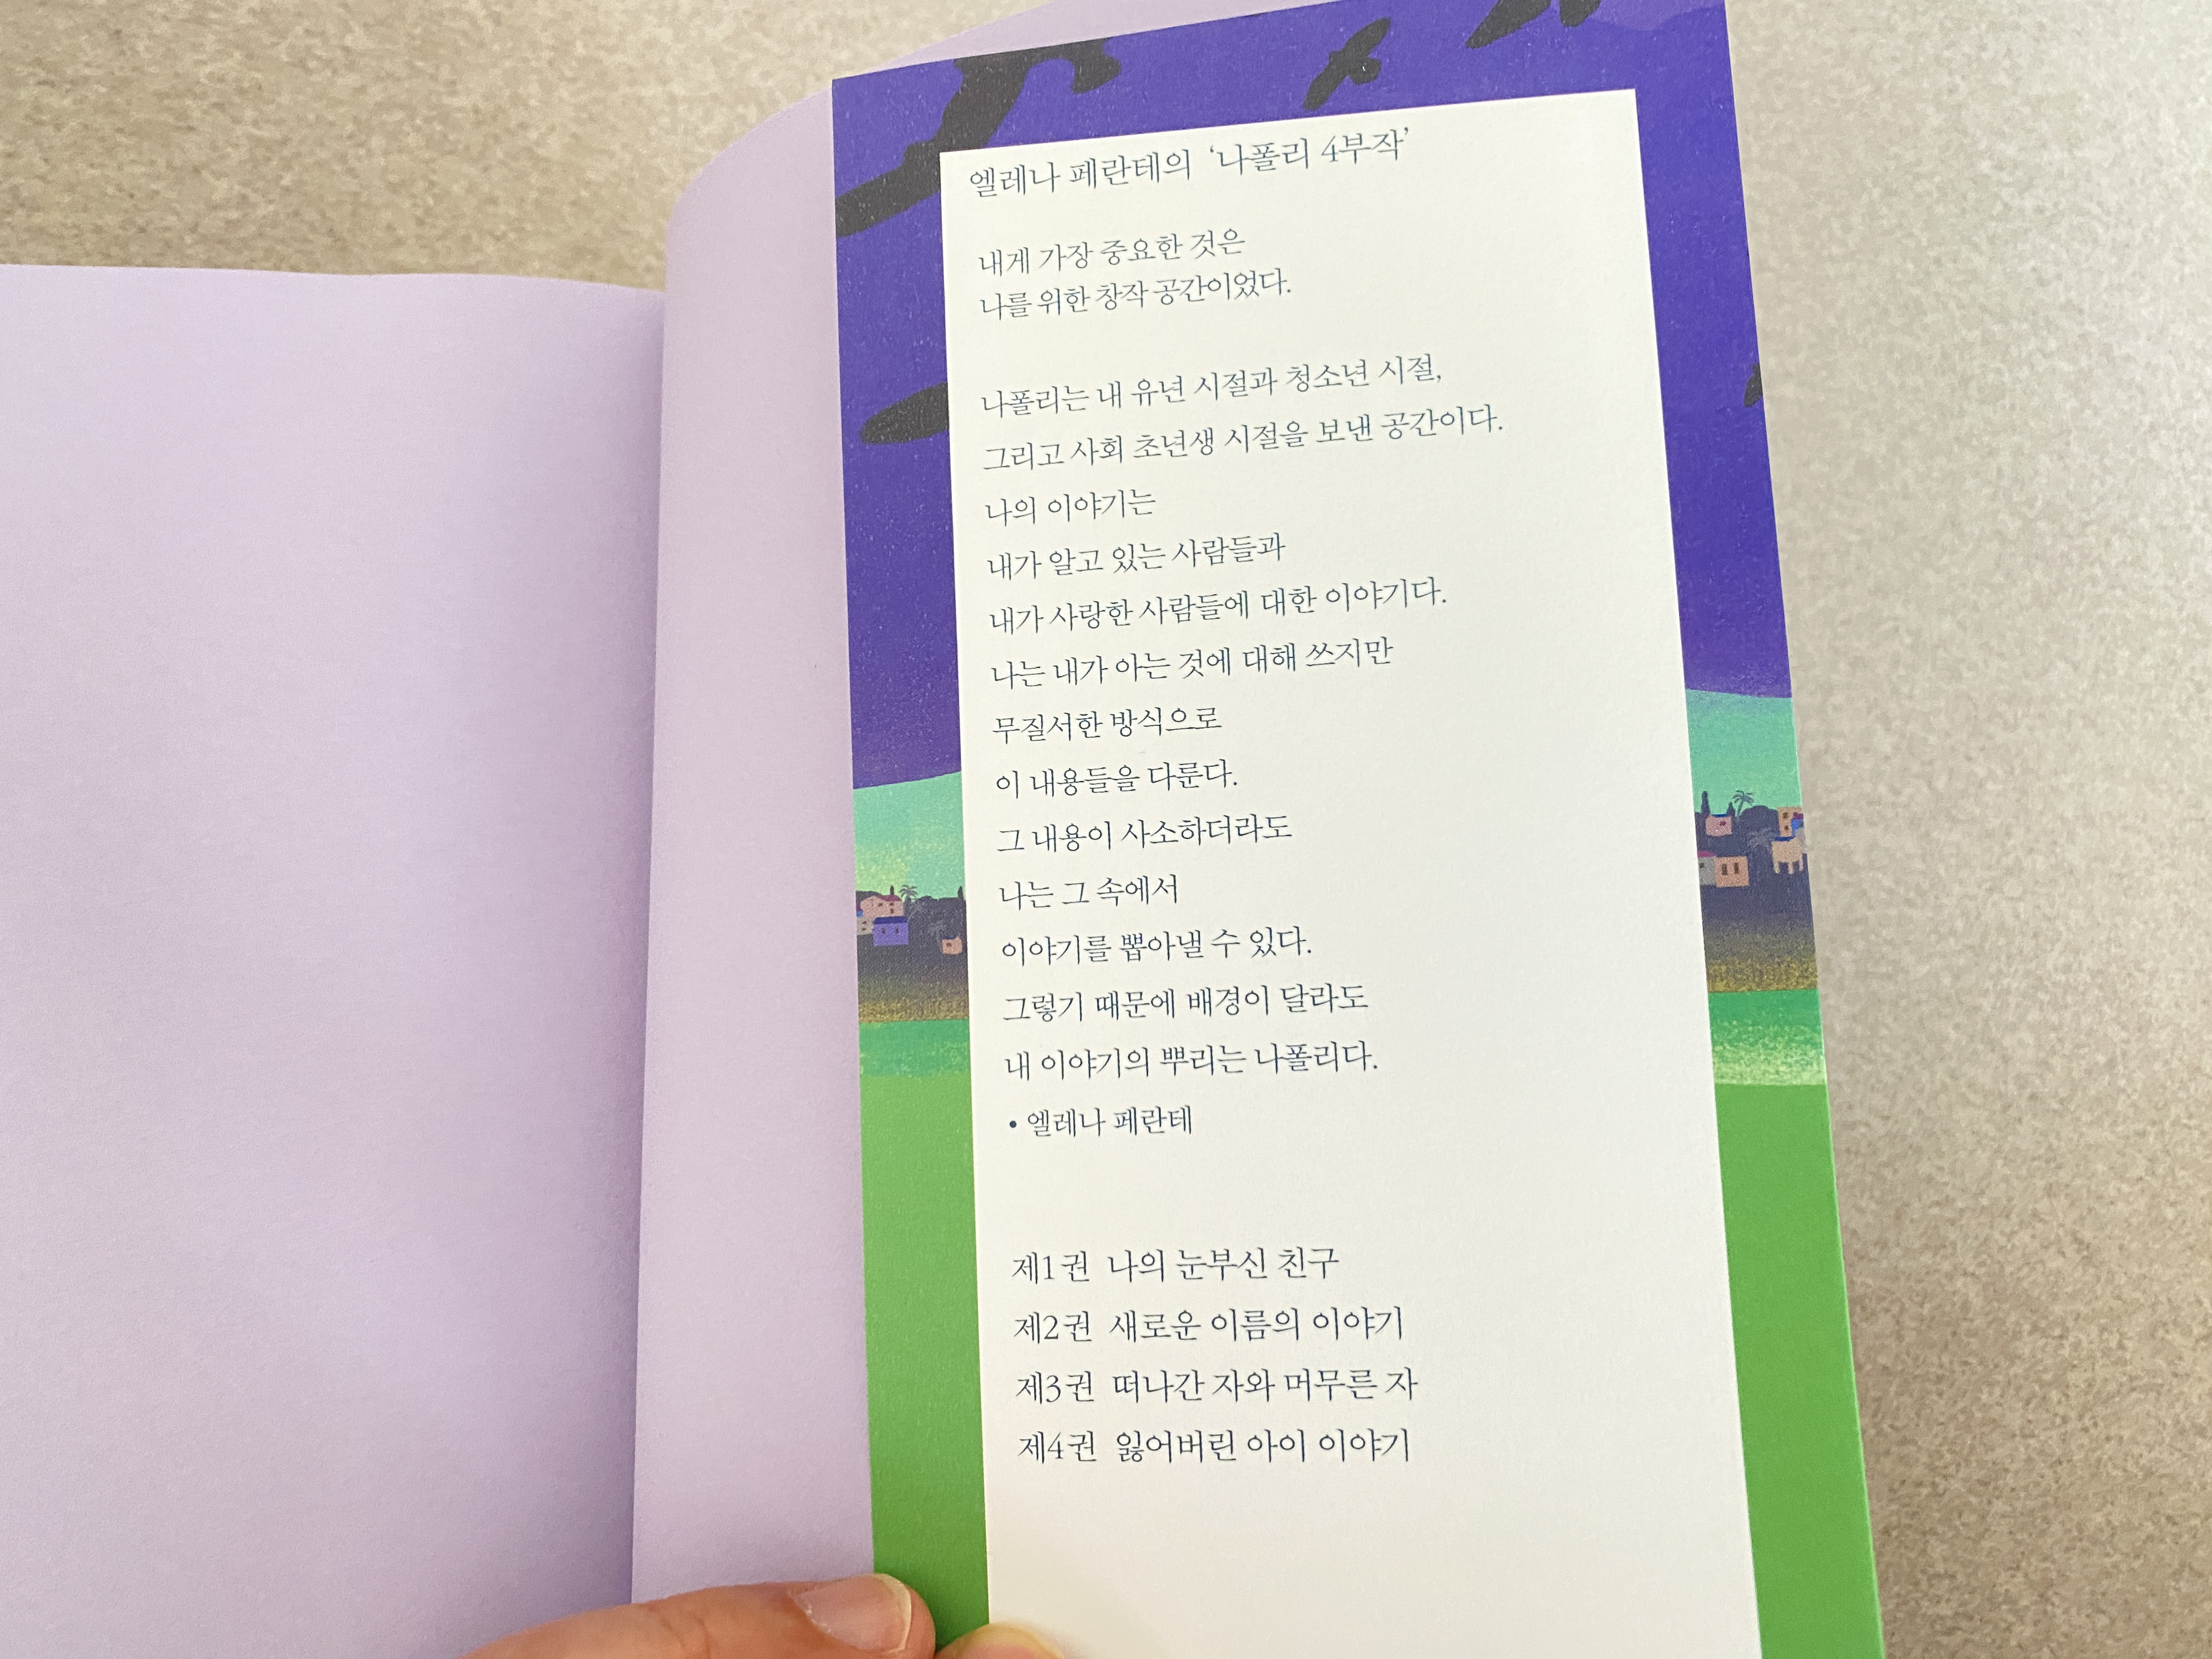 엘레나 페란테의 ‘나폴리 4부작’
내게 가장 중요한 것은
나를 위한 창작 공간이었다.
나폴리는 내 유년 시절과 청소년 시절,
그리고 사회 초년생 시절을 보낸 공간이다.
나의 이야기는
내가 알고 있는 사람들과
내가 사랑한 사람들에 대한 이야기다.
나는 내가 아는 것에 대해 쓰지만
무질서한 방식으로
이 내용들을 다룬다.
그 내용이 사소하더라도
나는 그 속에서
이야기를 뽑아낼 수 있다.
그렇기 때문에 배경이 달라도
내 이야기의 뿌리는 나폴리다.
• 엘레나 페란테
제1권 나의 눈부신 친구
제2권 새로운 이름의 이야기
제3권 떠나간 자와 머무른 자
제4권 잃어버린 아이 이야기